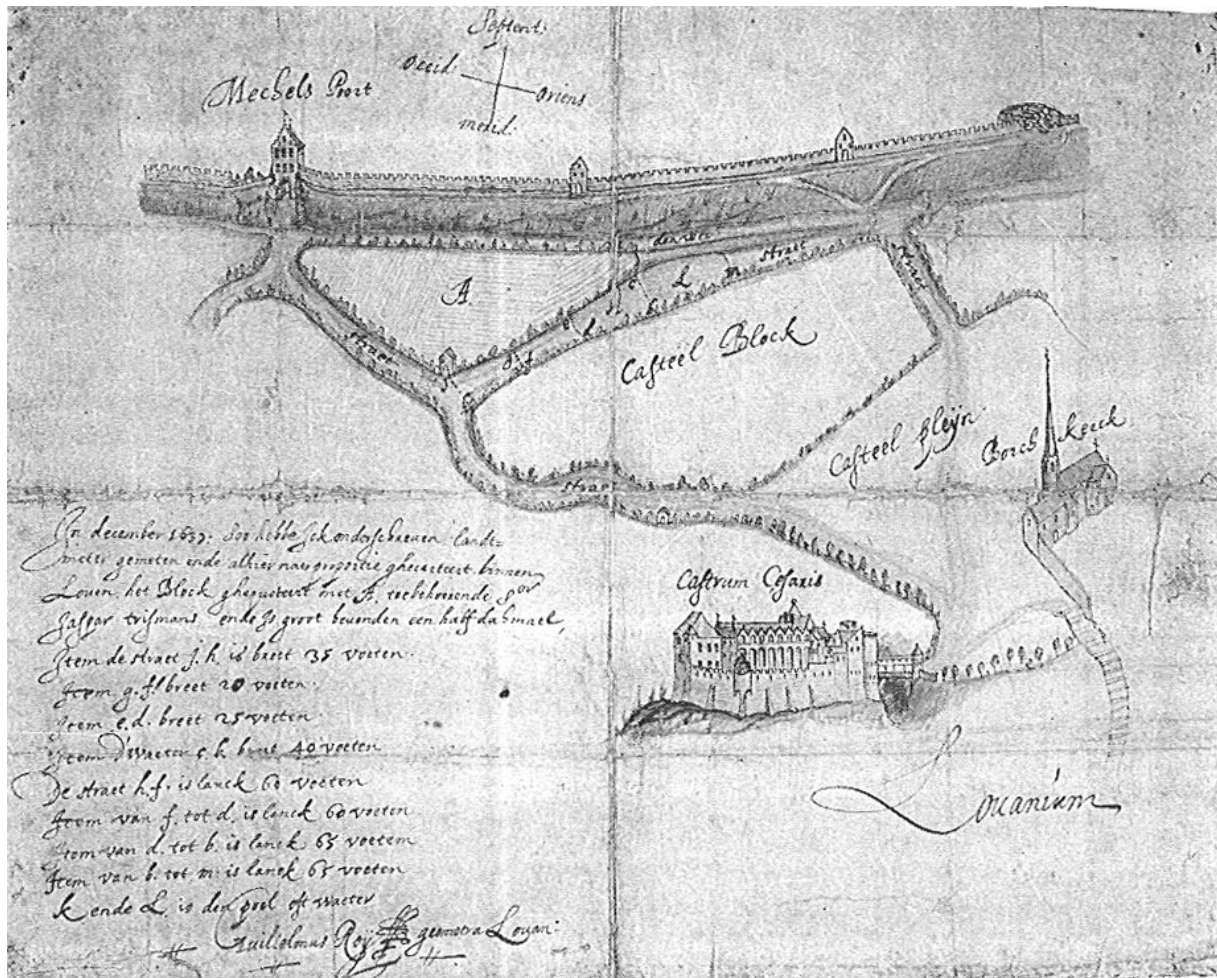 Septent:
Occid
Oriens
Merid:
Mechels Poort
straet
straet
A
L
straet
Casteel Block
Casteel Pleijn
Borch Kerck
straet
Castrum Cesaris
Lovanium
In december 1637. soo hebbe ick onderschreven landt=
meter gemeten ende alhier naer proportie ghecarteert binnen
Loven het Block ghequoteert met A. toebehoirende Sor
Jaspar trismans ende is groot bevonden een half dachmael,
Item de straet J. h. is breet 35 voeten
Item g. f. breet 20 voeten.
Item e. d. breet 25 voeten
Item d'waeter c. h. breet 40 voeten
De straet h. f. is lanck 60 voeten
Item van f. tot d. is lanck 60 voeten
Item van d. tot b. is lanck 65 voeten
Item van b. tot m. is lanck 65 voeten
K ende L. is den poel oft waeter
Guilielmus Roij geometra Lovan: